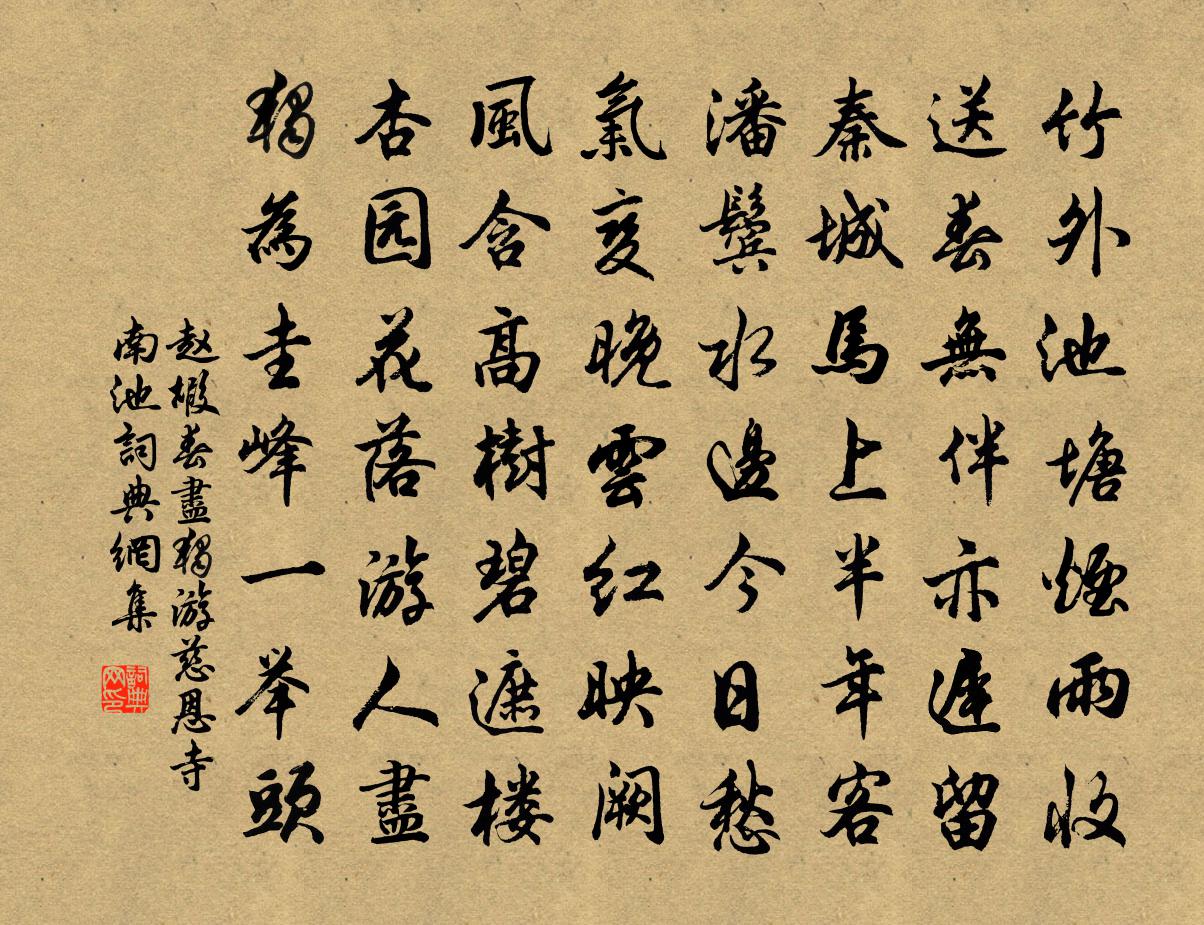 竹外池塘煙雨收
送春無伴亦遲留
秦城馬上半年客
潘鬢水邊今日愁
氣變晚雲红映阙
風含高樹碧遮楼
杏园花落游人盡
獨為圭峰一举頭
赵嘏春盡獨游慈恩寺
南池詞典網集
詞典网印